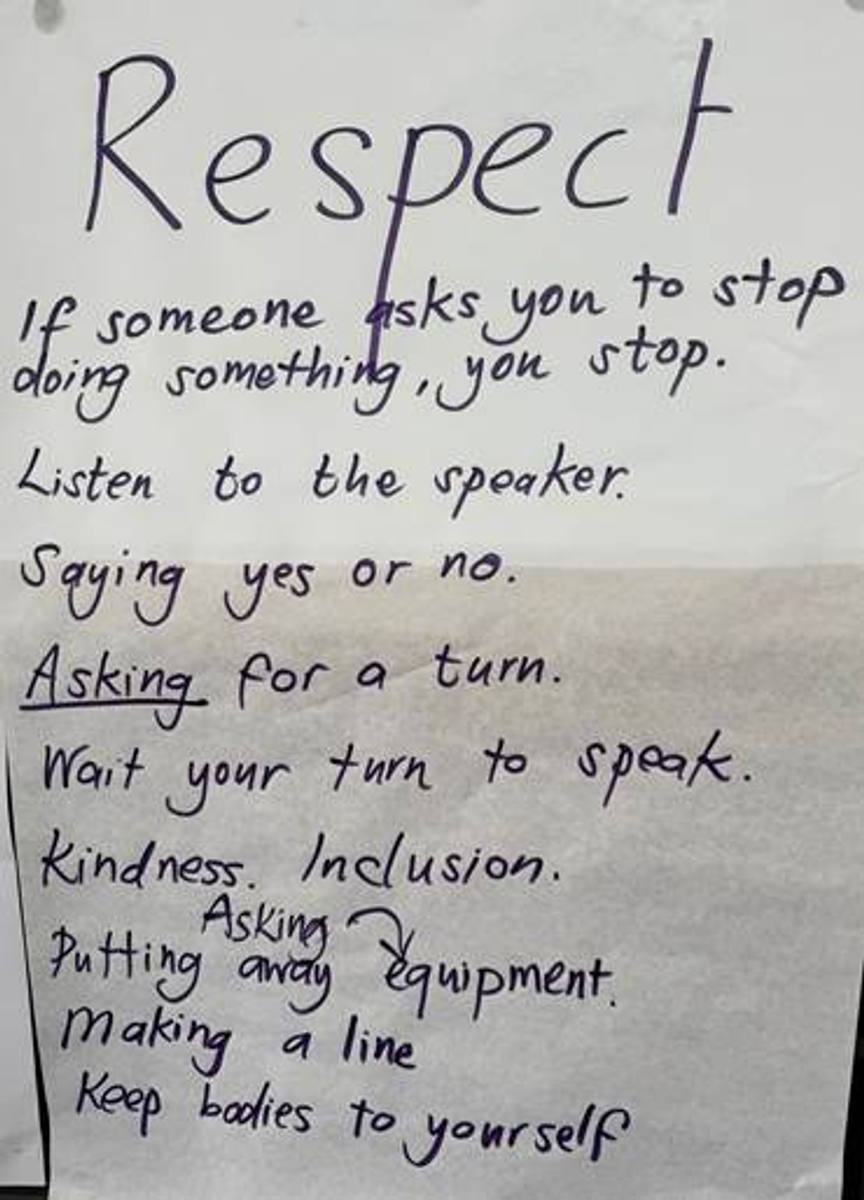 Respect
If someone asks you to stop
doing something, you stop.
Listen to the speaker.
Saying yes or no.
Asking for a turn.
Wait your turn to speak.
Kindness. Inclusion.
Asking
Putting away equipment.
Making a line
Keep bodies to yourself